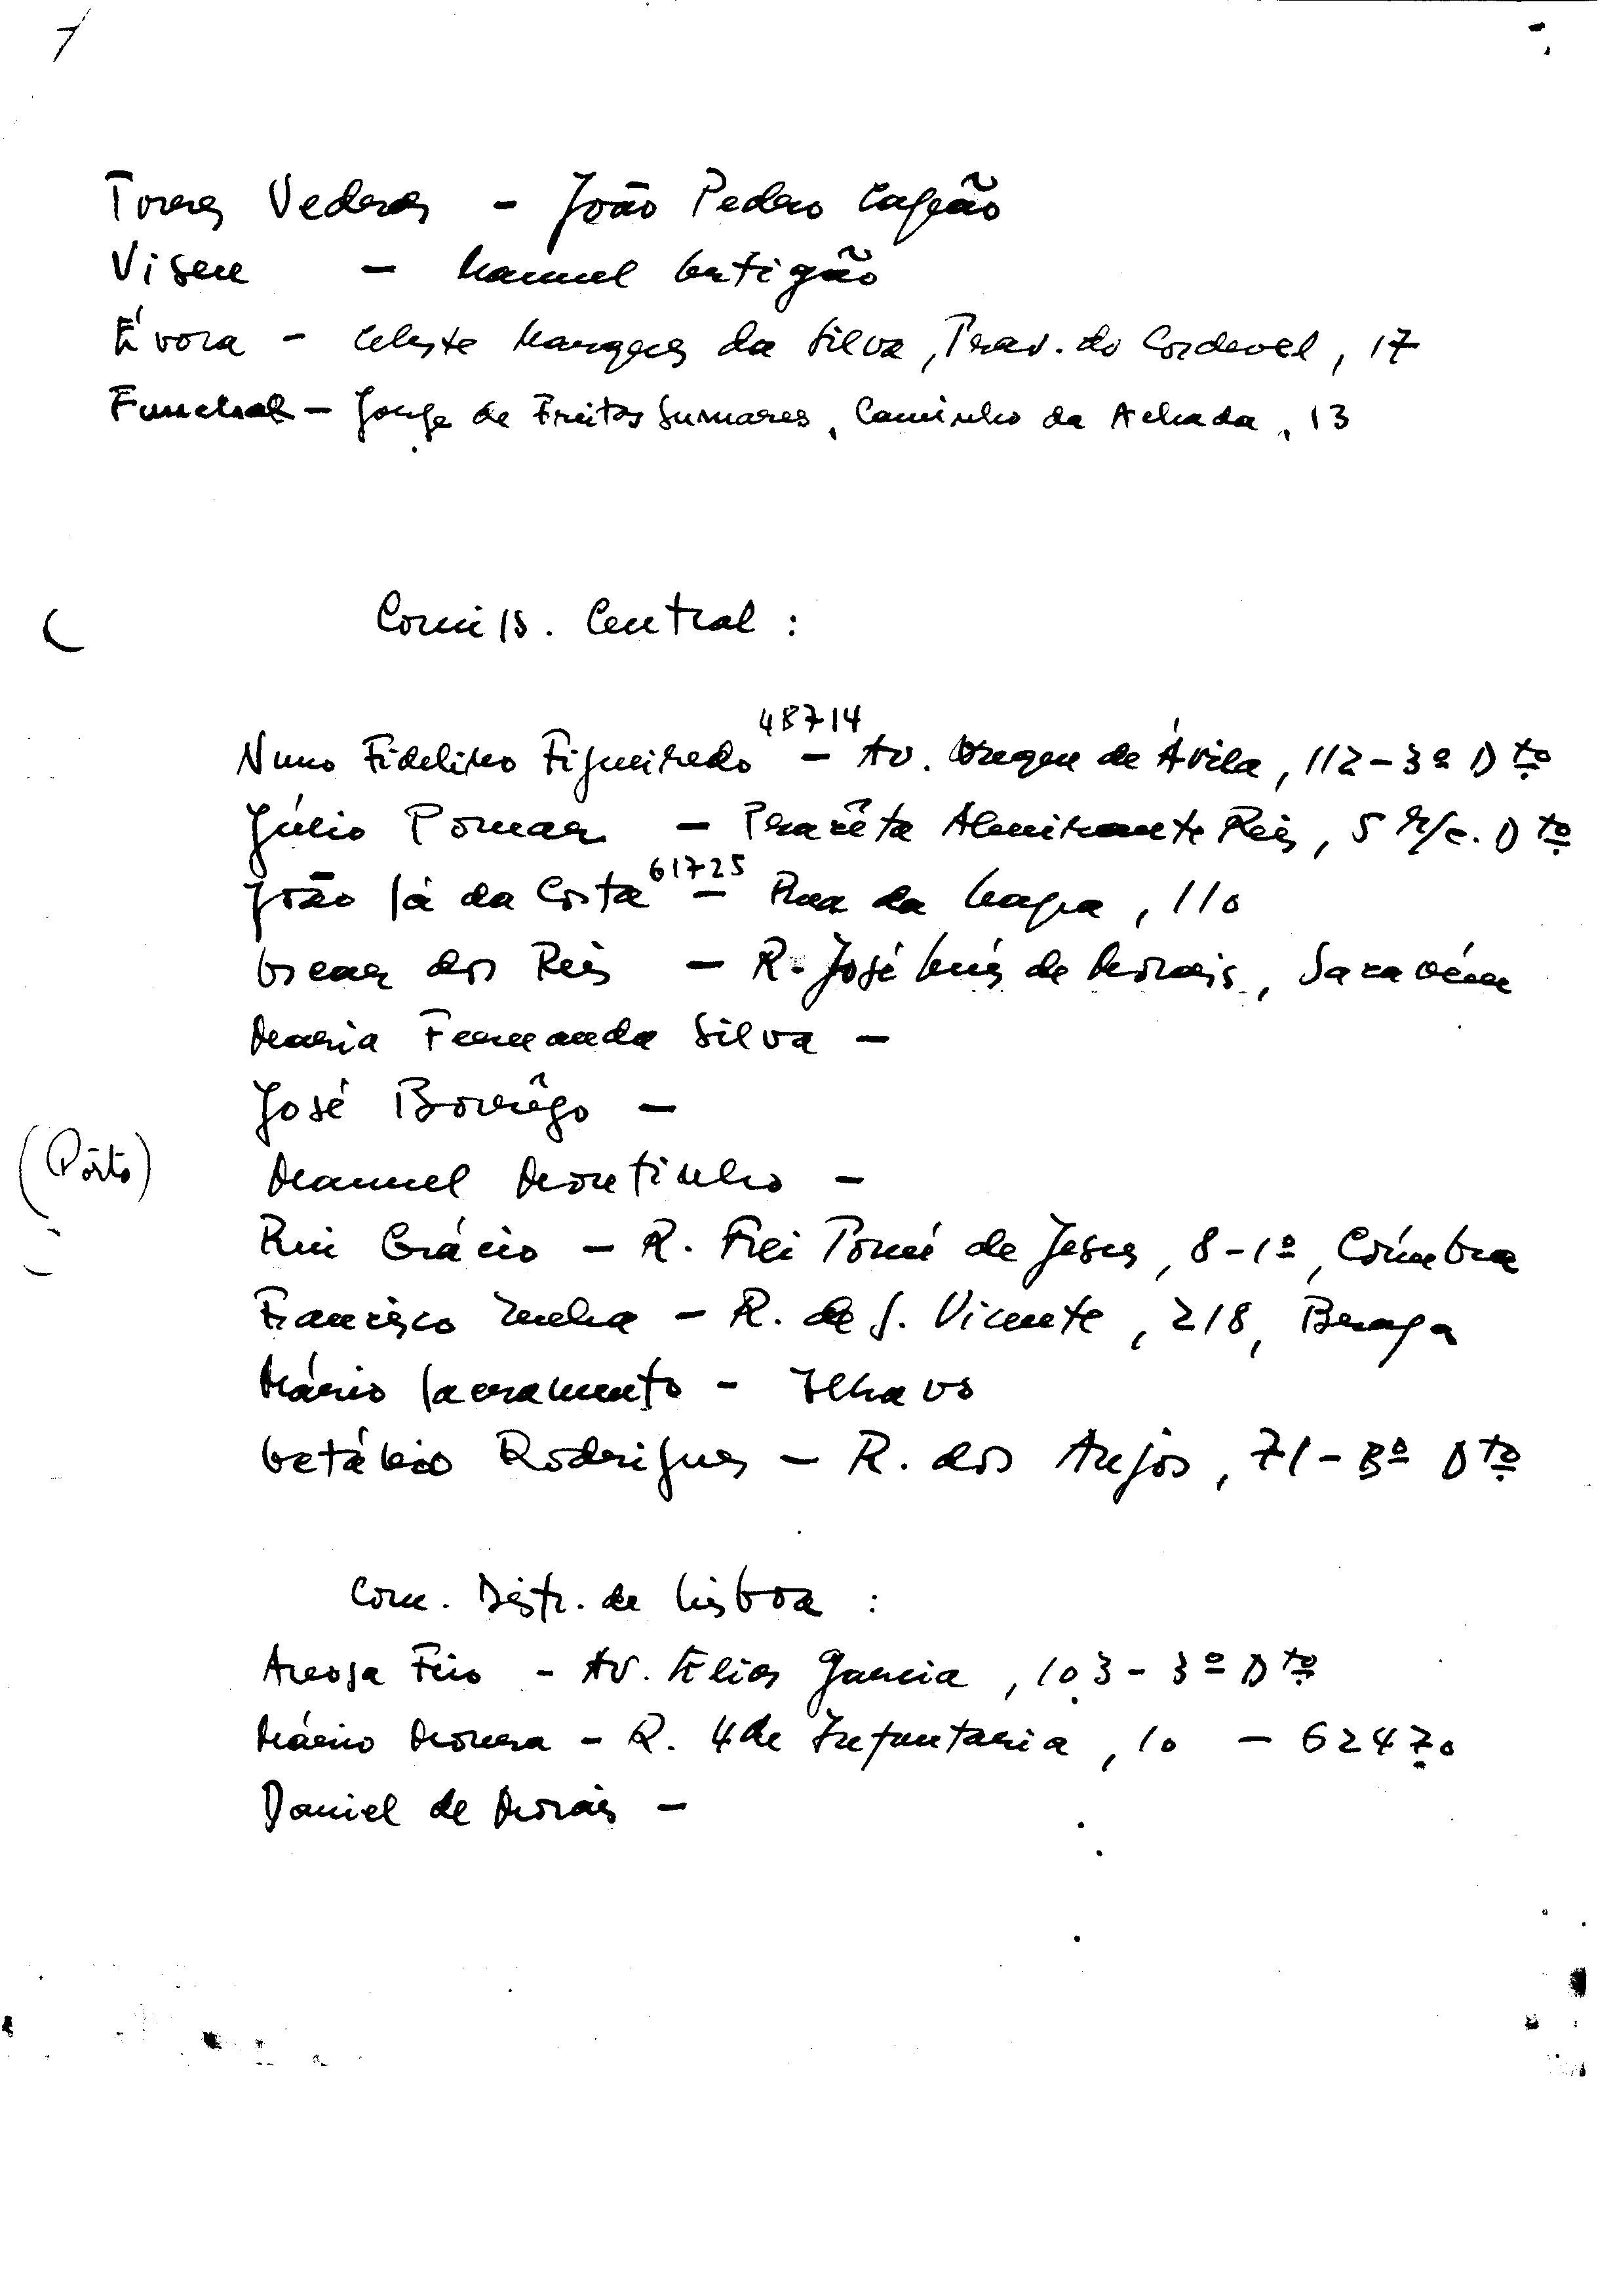 Torres Vedras - João Pedro Lafeão
Viseu - Manuel Catigão
Évora - Celeste Marques da Silva, Trav. do Cordovel, 17
Funchal - Jorge de Freitas Sumares, Caminho da Achada, 13
Comiss. Central :
48714
Nuno Fidelino Figueiredo - Av. Duque de Ávila, 112-3º Dto
Júlio Pomar - Pracêta Almirante Reis, 5 R/c. Dto
61725
João Sá da Costa - Rua da Lapa, 110
Oscar dos Reis - R. José Luís de Morais, Sacavém
Maria Fernanda Silva -
José Borrêgo -
(Pôrto) Manuel Moutinho -
Rui Grácio - R. Frei Tomé de Jesus, 8-1º, Coímbra
Francisco Cunha - R. de S. Vicente, 218, Braga
Mário Sacramento - Ilhavo
Octávio Rodrigues - R. dos Anjos, 71-3º Dto
Com. Distr. de Lisboa :
Areosa Feio - Av. Elias Garcia, 103-3º Dto
Mário Moura - R. 4 de Infantaria, 10 - 62470
Daniel de Morais -